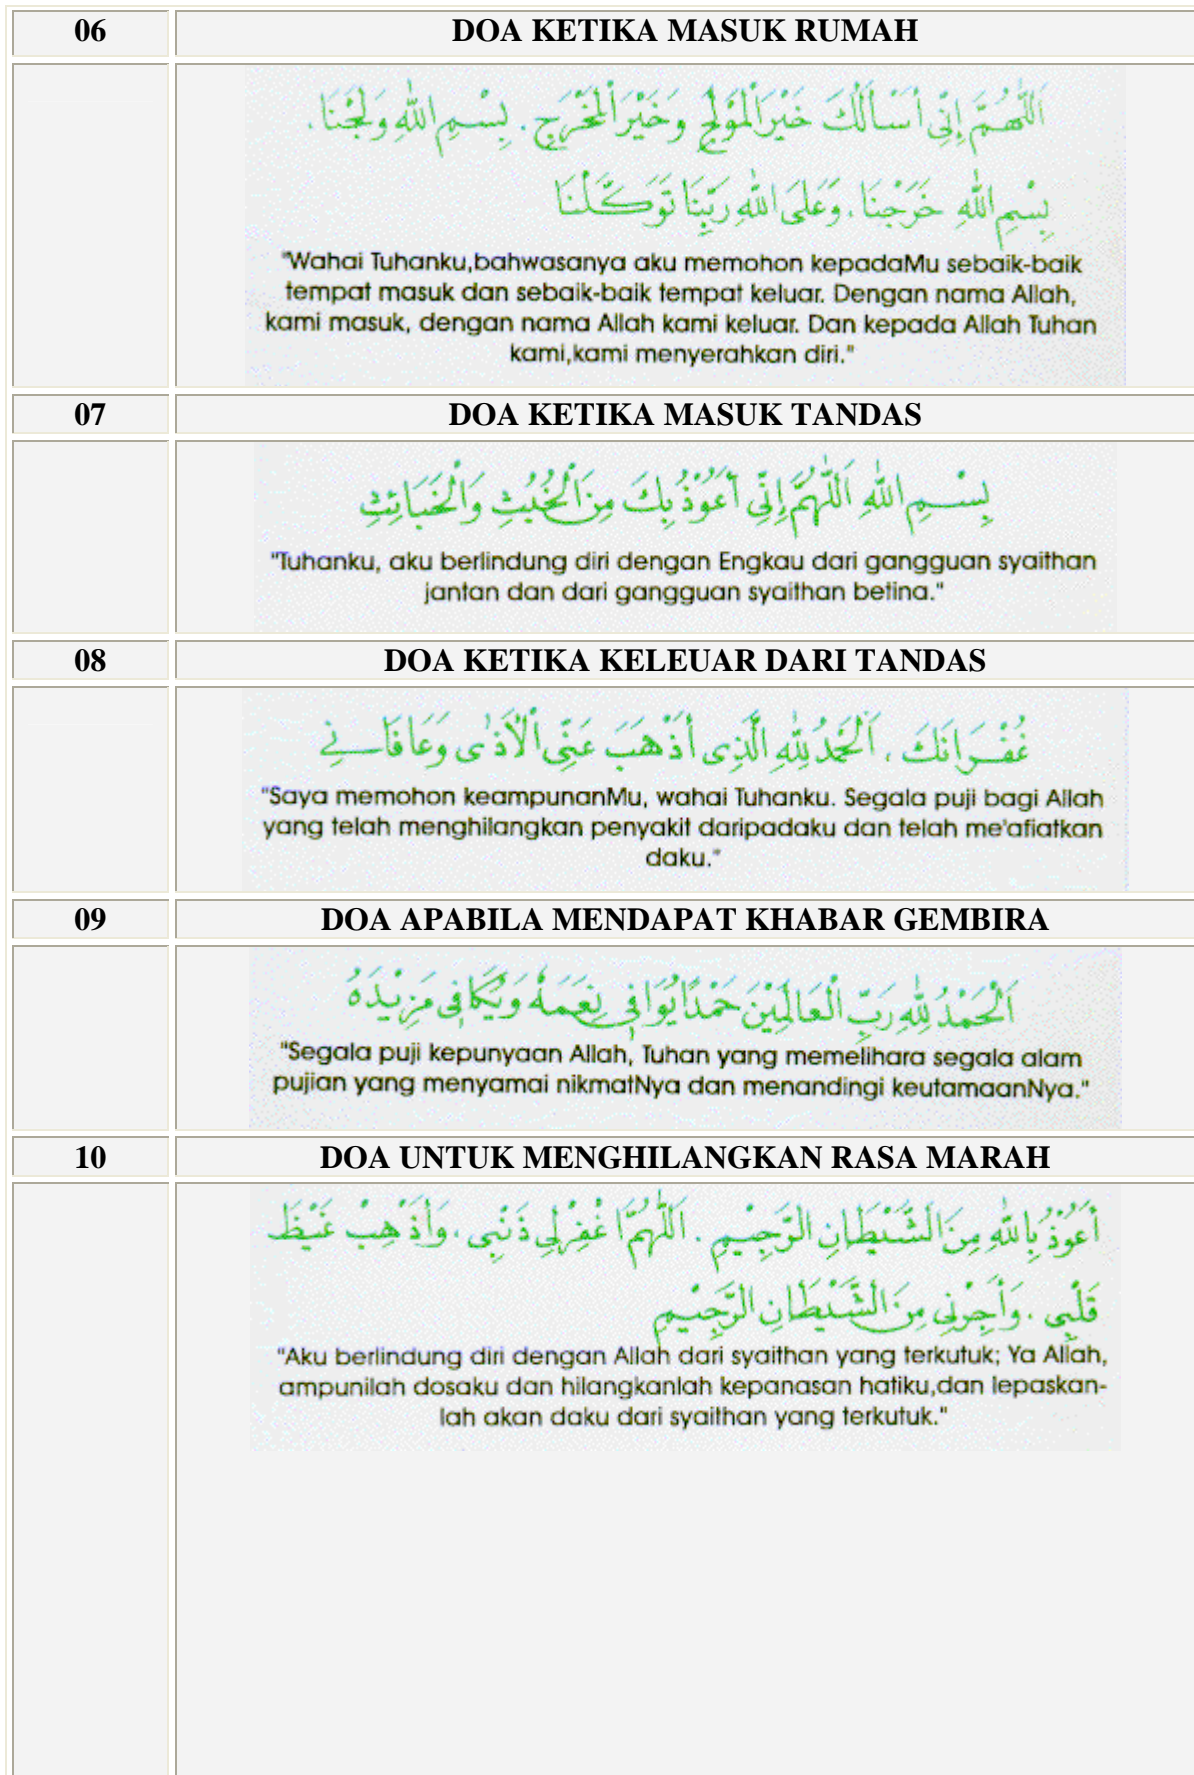 06 DOA KETIKA MASUK RUMAH
اَللّٰهُمَّ إِنِّى أَسْأَلُكَ خَيْرَ الْمَوْلِجِ وَخَيْرَ الْمَخْرَجِ . بِسْمِ اللهِ وَلَجْنَا .
بِسْمِ اللهِ خَرَجْنَا . وَعَلَى اللهِ رَبِّنَا تَوَكَّلْنَا
"Wahai Tuhanku,bahwasanya aku memohon kepadaMu sebaik-baik
tempat masuk dan sebaik-baik tempat keluar. Dengan nama Allah,
kami masuk, dengan nama Allah kami keluar. Dan kepada Allah Tuhan
kami,kami menyerahkan diri."
07 DOA KETIKA MASUK TANDAS
بِسْمِ اللهِ اَللّٰهُمَّ إِنِّى أَعُوْذُ بِكَ مِنَ الْخُبُثِ وَالْخَبَائِثِ
"Tuhanku, aku berlindung diri dengan Engkau dari gangguan syaithan
jantan dan dari gangguan syaithan betina."
08 DOA KETIKA KELEUAR DARI TANDAS
غُفْرَانَكَ . اَلْحَمْدُ لِلّٰهِ الَّذِى أَذْهَبَ عَنِّى الْأَذٰى وَعَافَانِى
"Saya memohon keampunanMu, wahai Tuhanku. Segala puji bagi Allah
yang telah menghilangkan penyakit daripadaku dan telah me'afiatkan
daku."
09 DOA APABILA MENDAPAT KHABAR GEMBIRA
اَلْحَمْدُ لِلّٰهِ رَبِّ الْعَالَمِيْنَ حَمْدًا يُوَافِى نِعَمَهُ وَيُكَافِى مَزِيْدَهُ
"Segala puji kepunyaan Allah, Tuhan yang memelihara segala alam
pujian yang menyamai nikmatNya dan menandingi keutamaanNya."
10 DOA UNTUK MENGHILANGKAN RASA MARAH
أَعُوْذُ بِاللهِ مِنَ الشَّيْطَانِ الرَّجِيْمِ . اَللّٰهُمَّ اغْفِرْلِى ذَنْبِى ، وَأَذْهِبْ غَيْظَ
قَلْبِى . وَأَجِرْنِى مِنَ الشَّيْطَانِ الرَّجِيْمِ
"Aku berlindung diri dengan Allah dari syaithan yang terkutuk; Ya Allah,
ampunilah dosaku dan hilangkanlah kepanasan hatiku,dan lepaskan-
lah akan daku dari syaithan yang terkutuk."